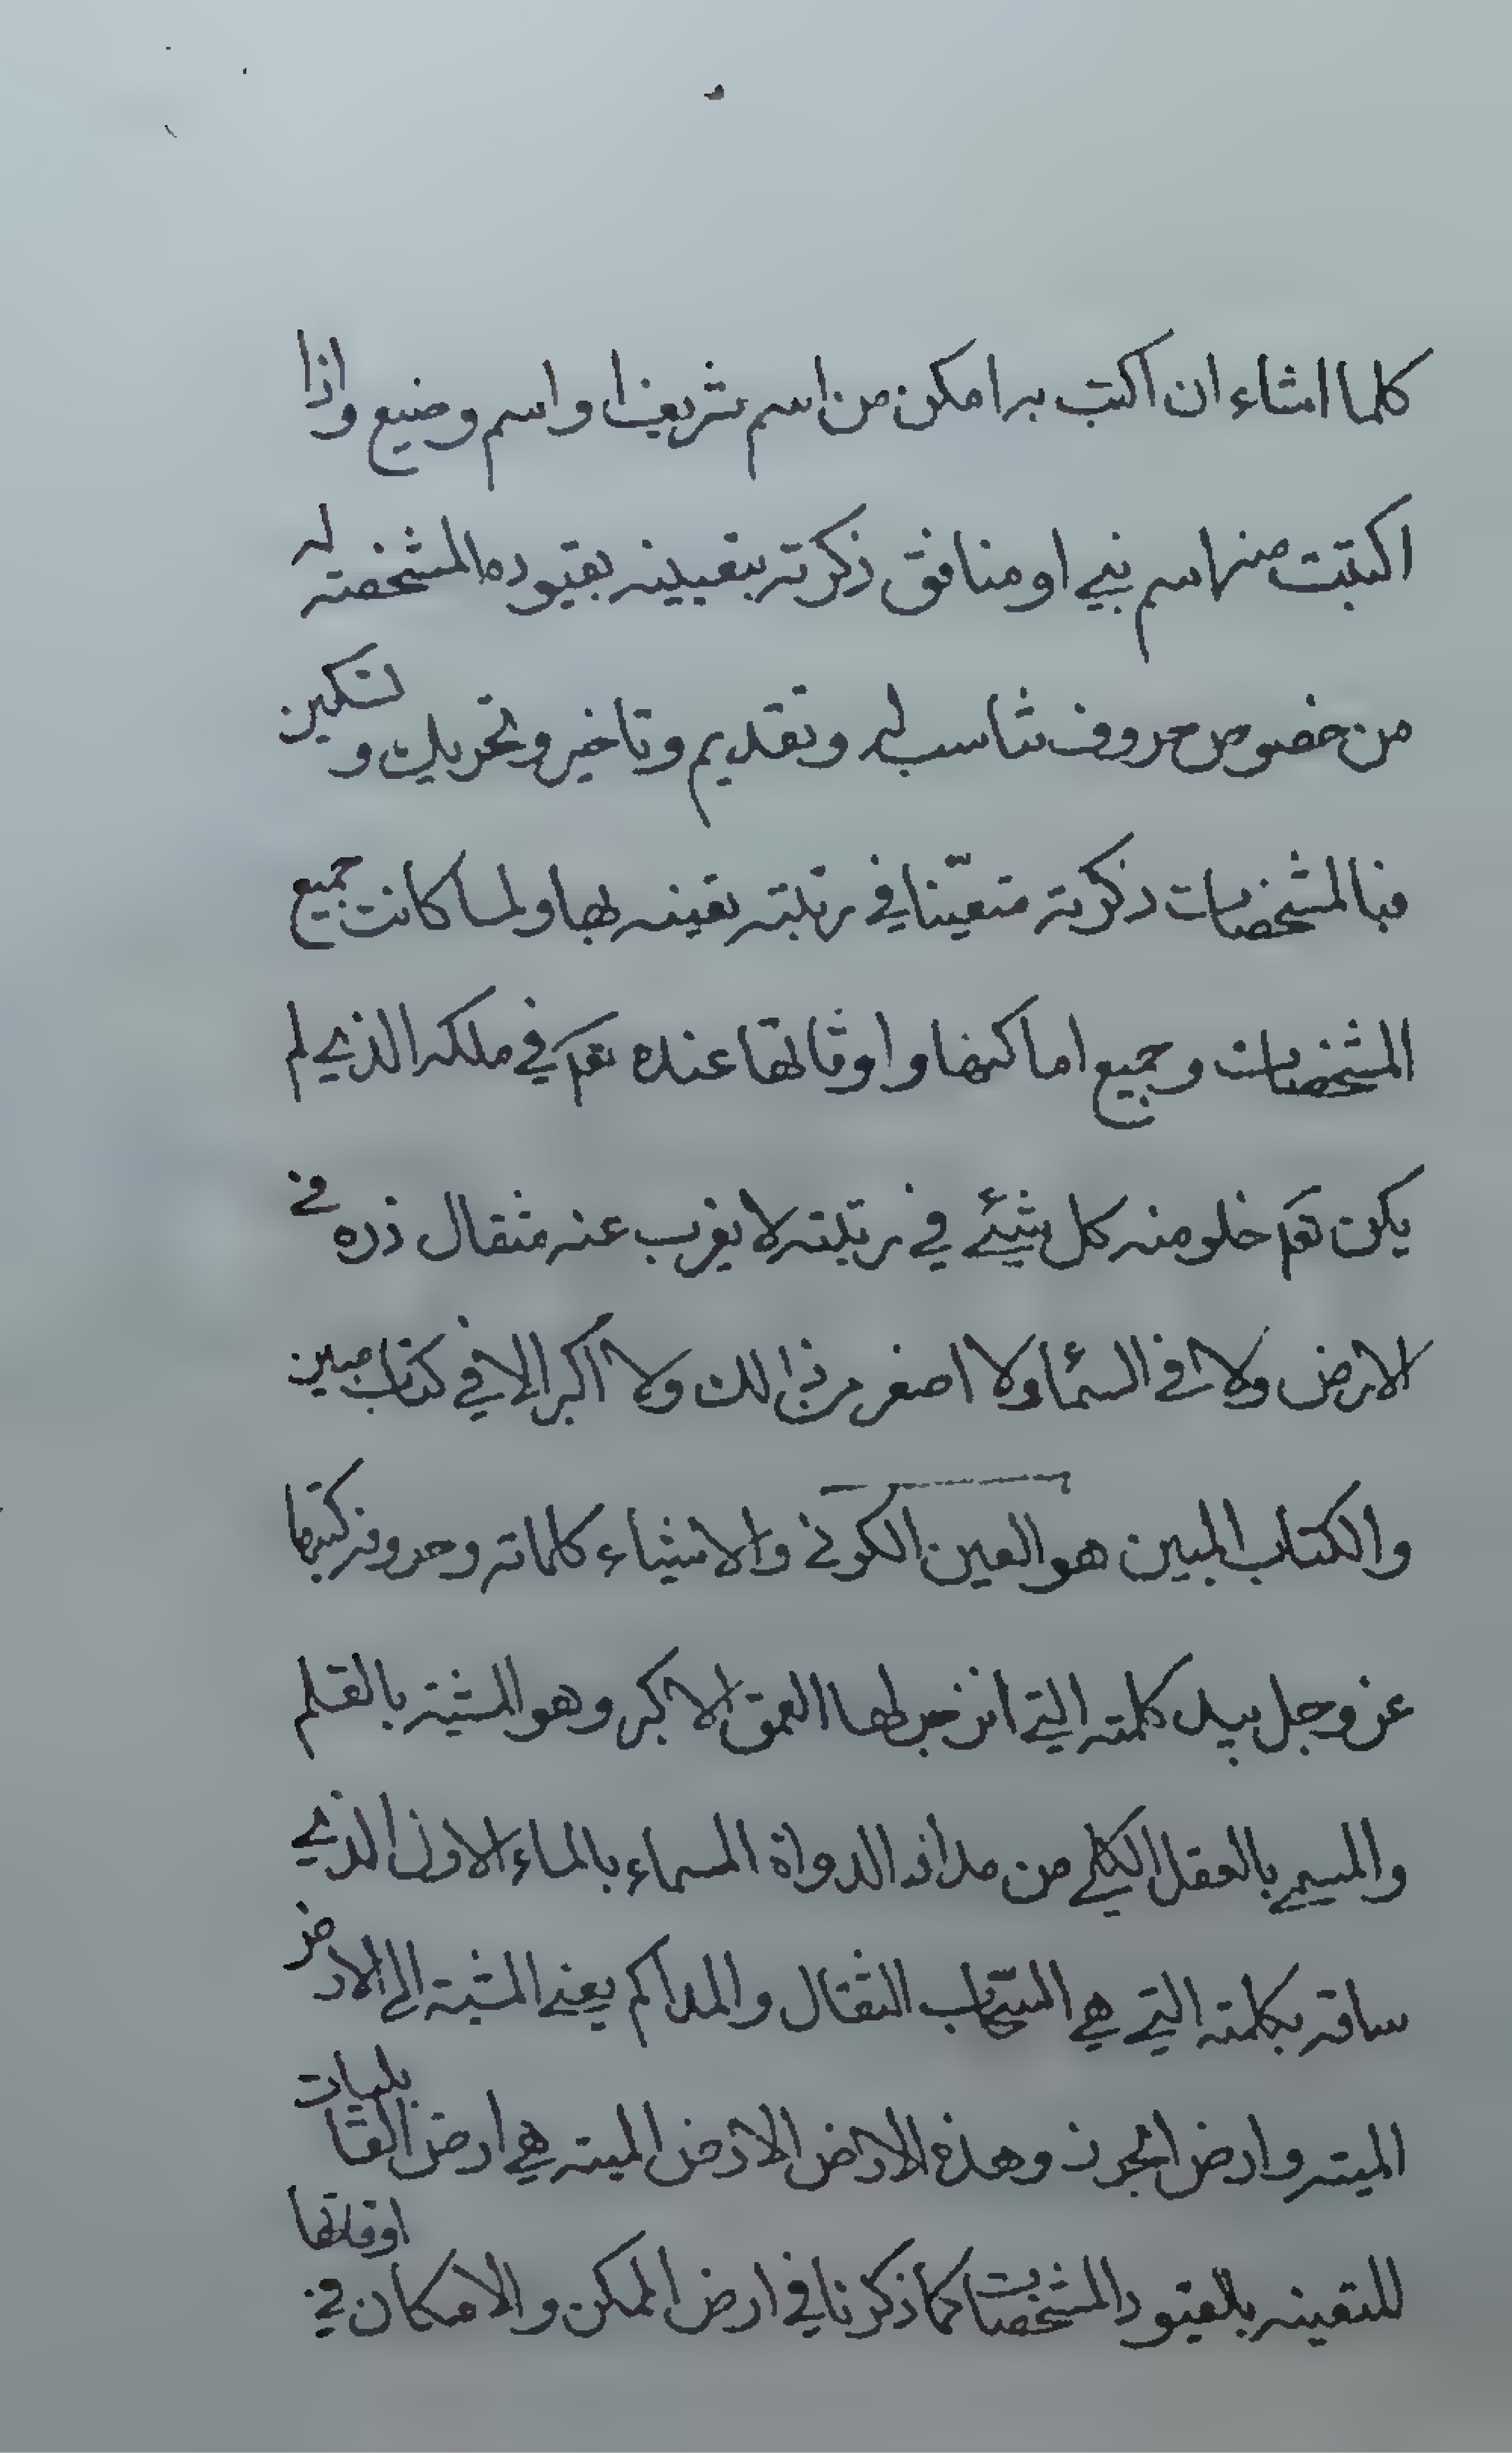 كلما اشاء ان اكتب به امكن من اسم شريف او اسم وضيع واذا
اكتبت منه اسم نبي او منافق ذكرته بتعيينه بقيوده المشخصته له
من خصوص حروف تناسب له وتقديم وتاخير وتحريك وتسكين
فبالمشخصات ذكرته متعيّنا في رتبته تعينه بها ولما كانت جميع
المشخصات وجميع اماكنها واوقاتها عنده تعم في ملكه الذي لم
يكن تعم خلو منه كل شيئ في رتبته لا يغرب عنه مثقال ذره في
الارض ولا في السماء ولا اصغر من ذالك ولا اكبر الا في كتاب مبين
والكتاب المبين هو العين الكوني والاشياء كلماته وحروفه كتبها
عز وجل بيد كلمته التي انزجر لها العمق الاكبر وهو المشية بالقلم
والمسمى بالعقل الكلي من مداد الدواة المسماء بالماء الاول الذي
ساقه بكلمته التي هي السّحاب الثقال والمداكم يعني المشية الى الارض
الميته وارض الجرز وهذه الارض الارض الميته هي ارض القابليات
للتعينه بالقيود المشخصات كما ذكرنا في ارض الممكن والامكان في اوقاتها